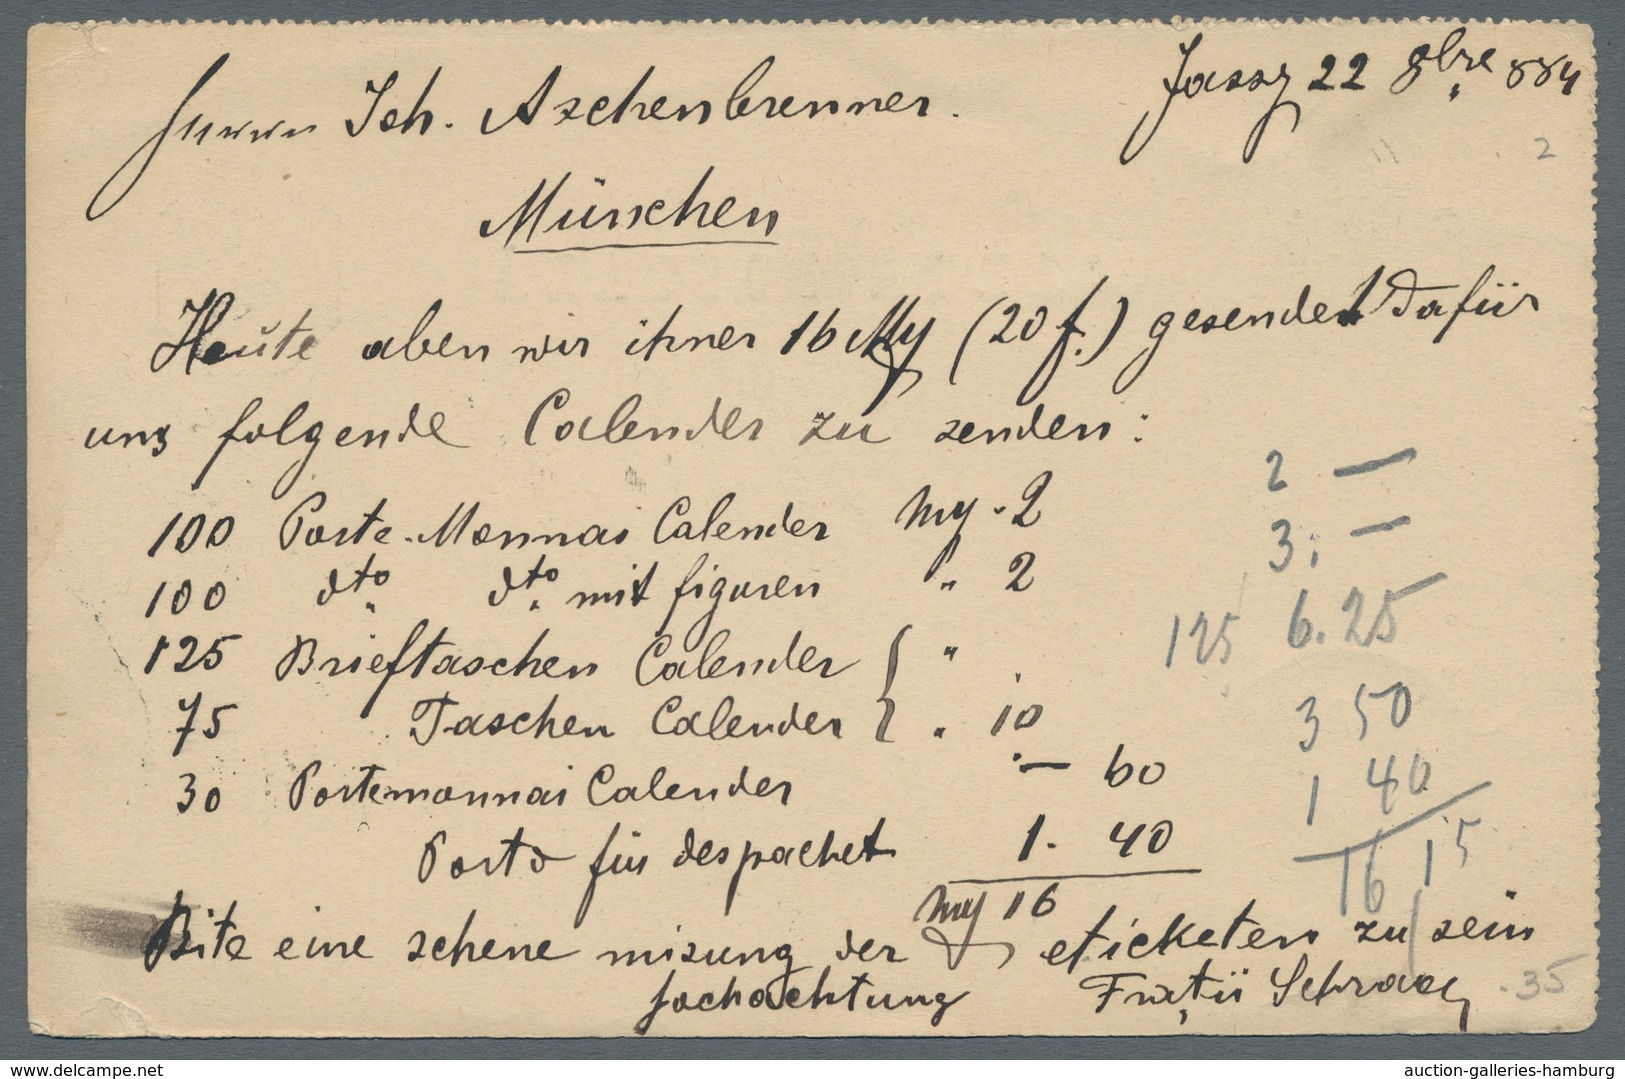 Jassy 22 8bre 884
Herrn Joh. Aschenbrenner.
2
München
Heute aben wir ihner 16 My (20 f.) gesendet dafür
uns folgende Calender zu senden:
2 —
100 Porte-Monnai Calender My. 2
3. —
100 dto dto mit figuren " 2
125 6.25
125 Brieftaschen Calender "
3 50
75 Taschen Calender " 10
1 40
30 Portemonnai Calender — 60
16 15
Porto für des pachet 1. 40
My 16
Bite eine schene misung der eticketen zu sein
hochachtung Frații Schraag
35
www.delcampe.net
auction-galleries-hamburg